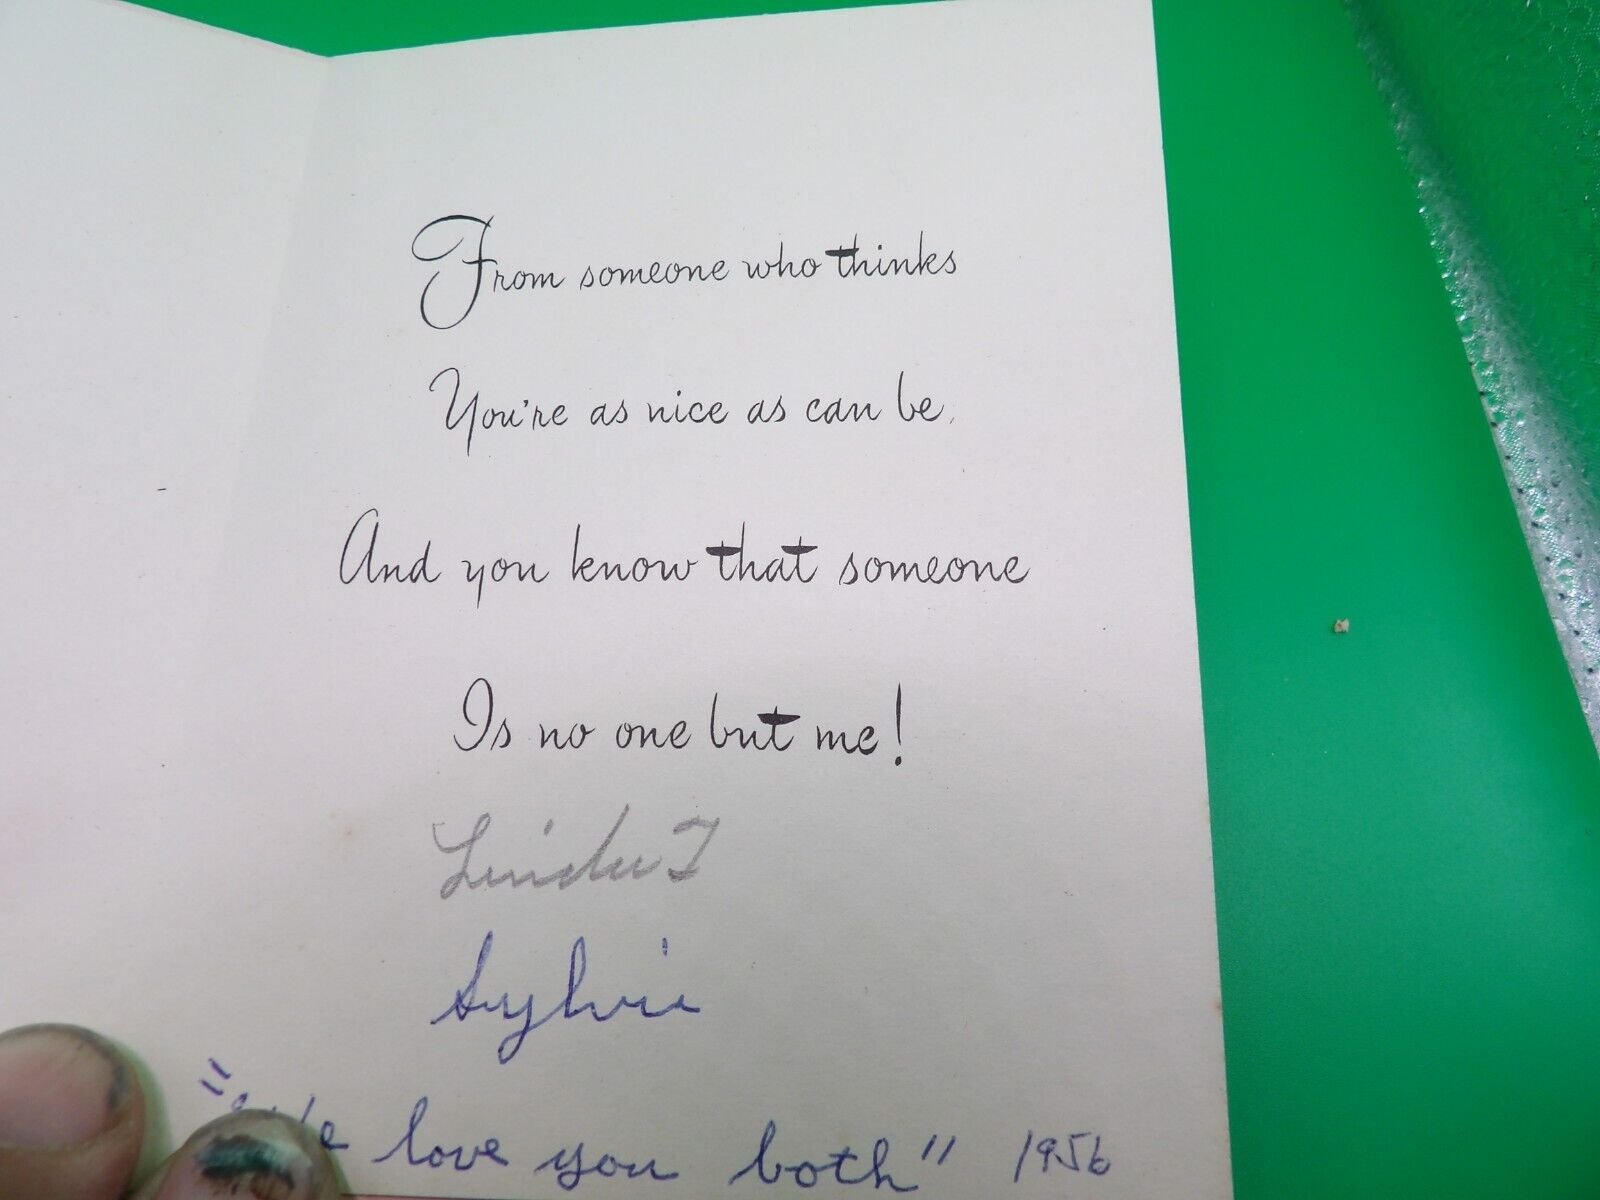 From someone who thinks
You're as nice as can be,
And you know that someone
Is no one but me!
Linda T
Sylvia
"We love you both" 1956